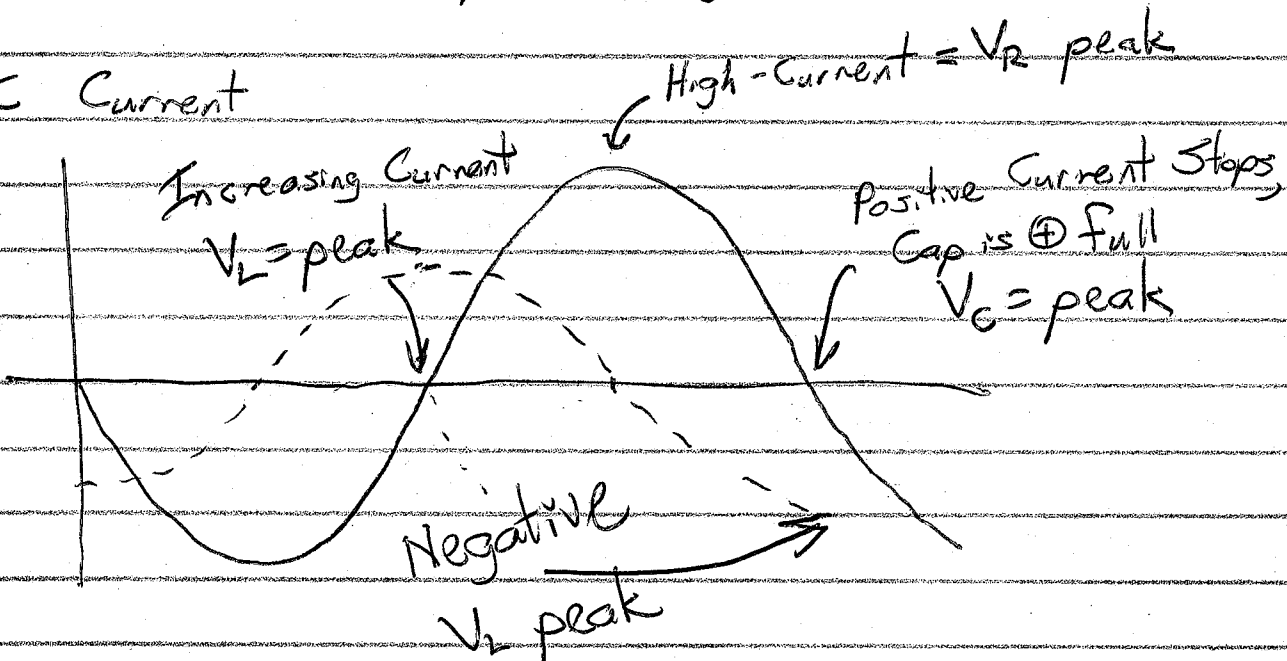 High-Current = VR peak
C Current
Increasing Current
VL = peak
Positive Current Stops,
Cap is ⊕ full
VC = peak
Negative
VL peak